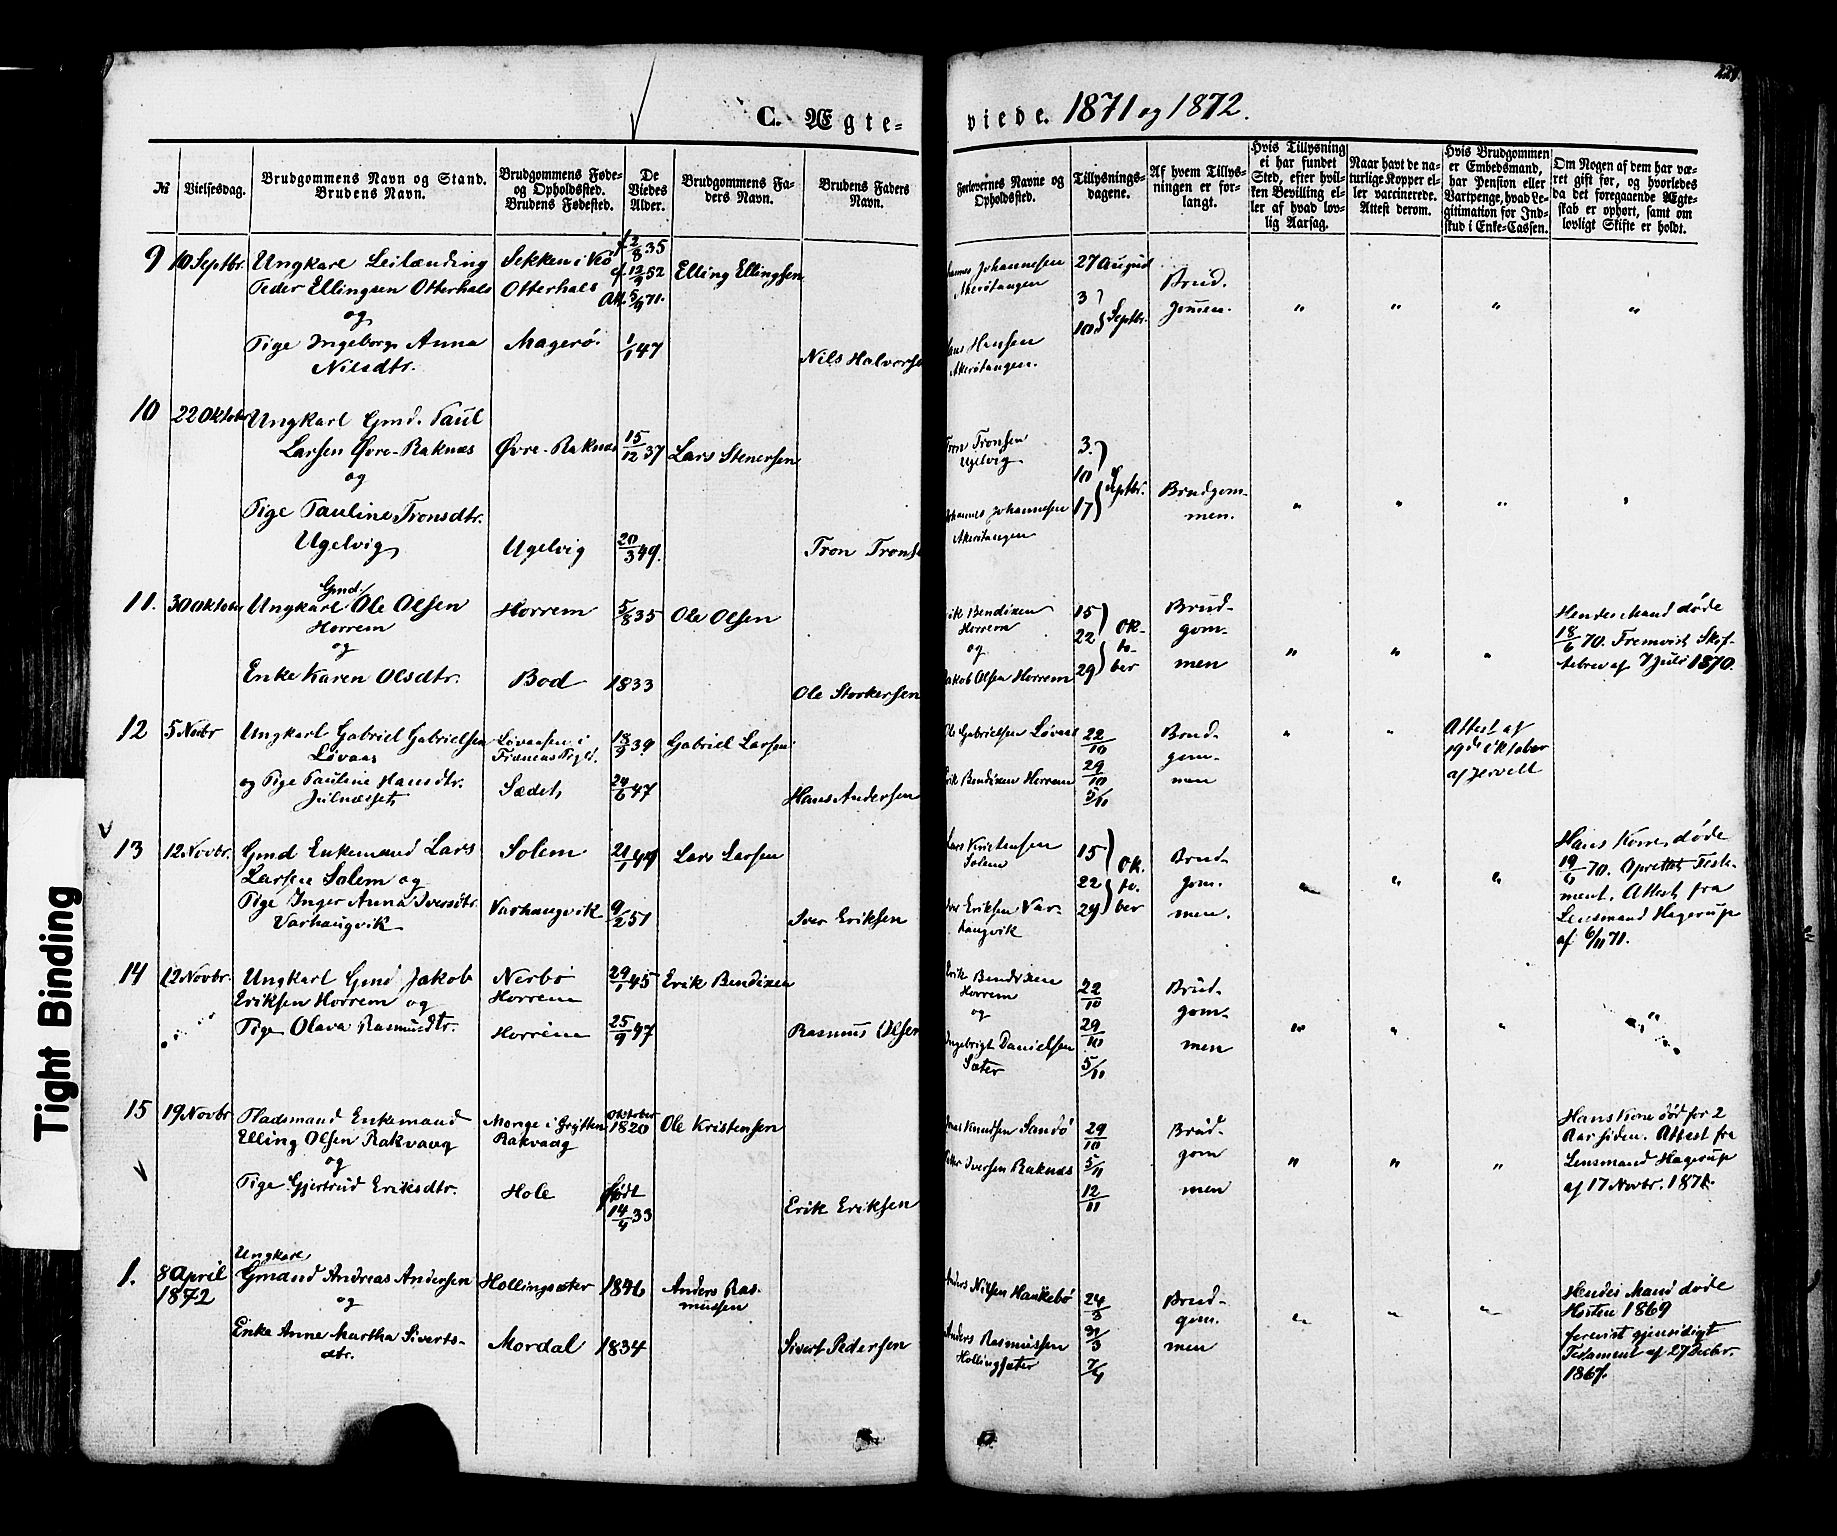 C. Ægte-
viede. 1871 og 1872.
№
Vielsesdag.
Brudgommens Navn og Stand.
Brudens Navn.
Brudgommens Føde-
og Opholdssted.
Brudens Fødested.
De
Viedes
Alder.
Brudgommens Fa-
ders Navn.
Brudens Faders
Navn.
Forlovernes Navne og
Opholdssted.
Tillysnings-
dagene.
Af hvem Tillys-
ningen er for-
langt.
Hvis Tillysning
ei har fundet
Sted, efter hvil-
ken Bevilling el-
ler af hvad lov-
lig Aarsag.
Naar havt de na-
turlige Kopper el-
ler vaccinerede.
Attest derom.
Hvis Brudgommen
er Embedsmand,
har Pension eller
Vartpenge, hvad Le-
gitimation for Ind-
skud i Enke-Cassen.
Om Nogen af dem har væ-
ret gift før, og hvorledes
da det foregaaende Ægte-
skab er ophørt, samt om
lovligt Skifte er holdt.
9
10 Septbr.
Ungkarl Leilænding
Peder Ellingsen Otterhals
og
Pige Ingeborg Anna
Nilsdtr.
Sekken i
Otterhals
Magerö.
f. 2/8 35
1/1 47
Elling Ellingsen
Nils Halvorse
Johannesen
Akerötangen
Hansen
Akerötangen.
27 August
3
10 } Septbr.
Brud-
gommen.
" " " "
10
22 Oktober
Ungkarl Gmd. Paul
Larsen Øvre-Raknæs
og
Pige Pauline Tronsdtr.
Ugelvig
Øvre-Raknæs
Ugelvig
15/12 37
20/3 49.
Lars Stenersen
Tron Trons
Tron Tronsen
Ugelvig
Johannes Johannesen
Akerötangen
3.
10
17 } Septbr.
Brudgom-
men.
" " " "
11.
30 Oktober
Gmd.
Ungkarl Ole Olsen
Horrem
og
Enke Karen Olsdtr.
Horrem
Bod
5/8 35
1833
Ole Olsen
Ole Storkersen
Erik Bendixen
Horrem
og
Jakob Olsen Horrem
15
22
29 } Ok-
to-
ber
Brud-
gom-
men
" " "
Hendes Mand døde
18/6 70. Fremvist Skif-
tebrev af 7 Juli 1870.
12
5 Novbr
Ungkarl Gabriel Gabrielsen
Løvaas
og Pige Pauline Hansdtr.
Julnæsset
Løvaasen i
Sædet
18/9 39
24/6 47
Gabriel Larsen
Hans Andersen
Ole Gabrielsen Løvaas
Erik Bendixen Horrem
22/10
29/10
5/11
Brud-
gom-
men
" "
Attest af
19de Oktober
af Jervell
13
12 Novbr.
Gmd Enkemand Lars
Larsen Solem og
Pige Inger Anna Iversdtr.
Varhaugvik
Solem
Varhaugvik
9/2 51
Lars Larsen
Iver Eriksen
Lars Kristensen
Solem
Iver Eriksen Var-
haugvik
15
22
29 } Ok.
to.
ber
Brud-
gom.
men.
" " "
Hans Kone døde
19/6 70. Oprettet Testa-
ment. Attest fra
Lensmand Hagerup
af 6/11 71.
14
12 Novbr.
Ungkarl Gmd Jakob
Eriksen Horrem og
Pige Olava Rasmusdtr.
Nerbö
Horrem
Horrem
29/1 45
25/9 47
Erik Bendixen
Rasmus Olsen
Erik Bendixen
Horrem
og
Ingebrigt Danielsen
Sæter
22/10
29/10
5/11
Brud-
gom-
men
" " " "
15
19 Novbr
Pladsmand Enkemand
Elling Olsen Rakvaag
og
Pige Gjertrud Eriksdtr.
Monge i Grytten
Rakvaag
Hole
Oktober
1820
født
14/4 33
Ole Kristensen
Erik Eriksen
Jonas Knudsen Sandö
Peter Iversen Raknæs
29/10
5/11
12/11
Brud-
gom
men
" " "
Hans Kone død for 2
Aar siden. Attest fra
Lensmand Hagerup
af 17 Novbr. 1871.
1.
8 April
1872
Ungkarl
Gmand Andreas Andersen
og
Enke Anne Martha Siverts-
dtr.
Hollingsæter
Mordal
1846
1834
Anders Ras-
mussen
Sivert Pedersen
Anders Nilsen Haukebö
Anders Rasmussen
Hollingsæter
24/3
31/3
7/4
Brud-
gom.
men
" " "
Hendes Mand døde
Høsten 1869
forevist gjensidigt
Testament af 27 Decbr.
1867.
Tight Binding